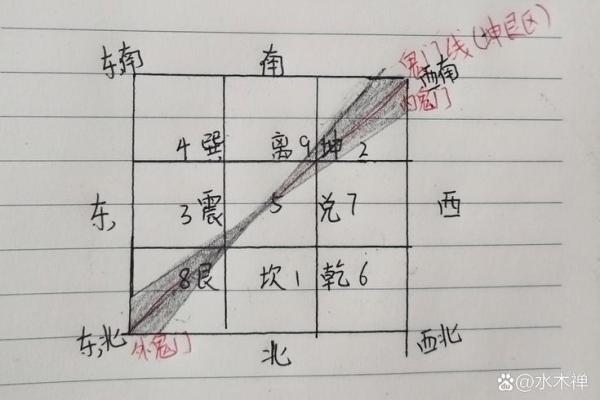 鬼门线(坤艮区)
东南 南 西南
内鬼门
4巽 离9 坤2
东 3震 5 兑7 西
8艮 坎1 乾6
东北 外鬼门 北 西北
@水木禅